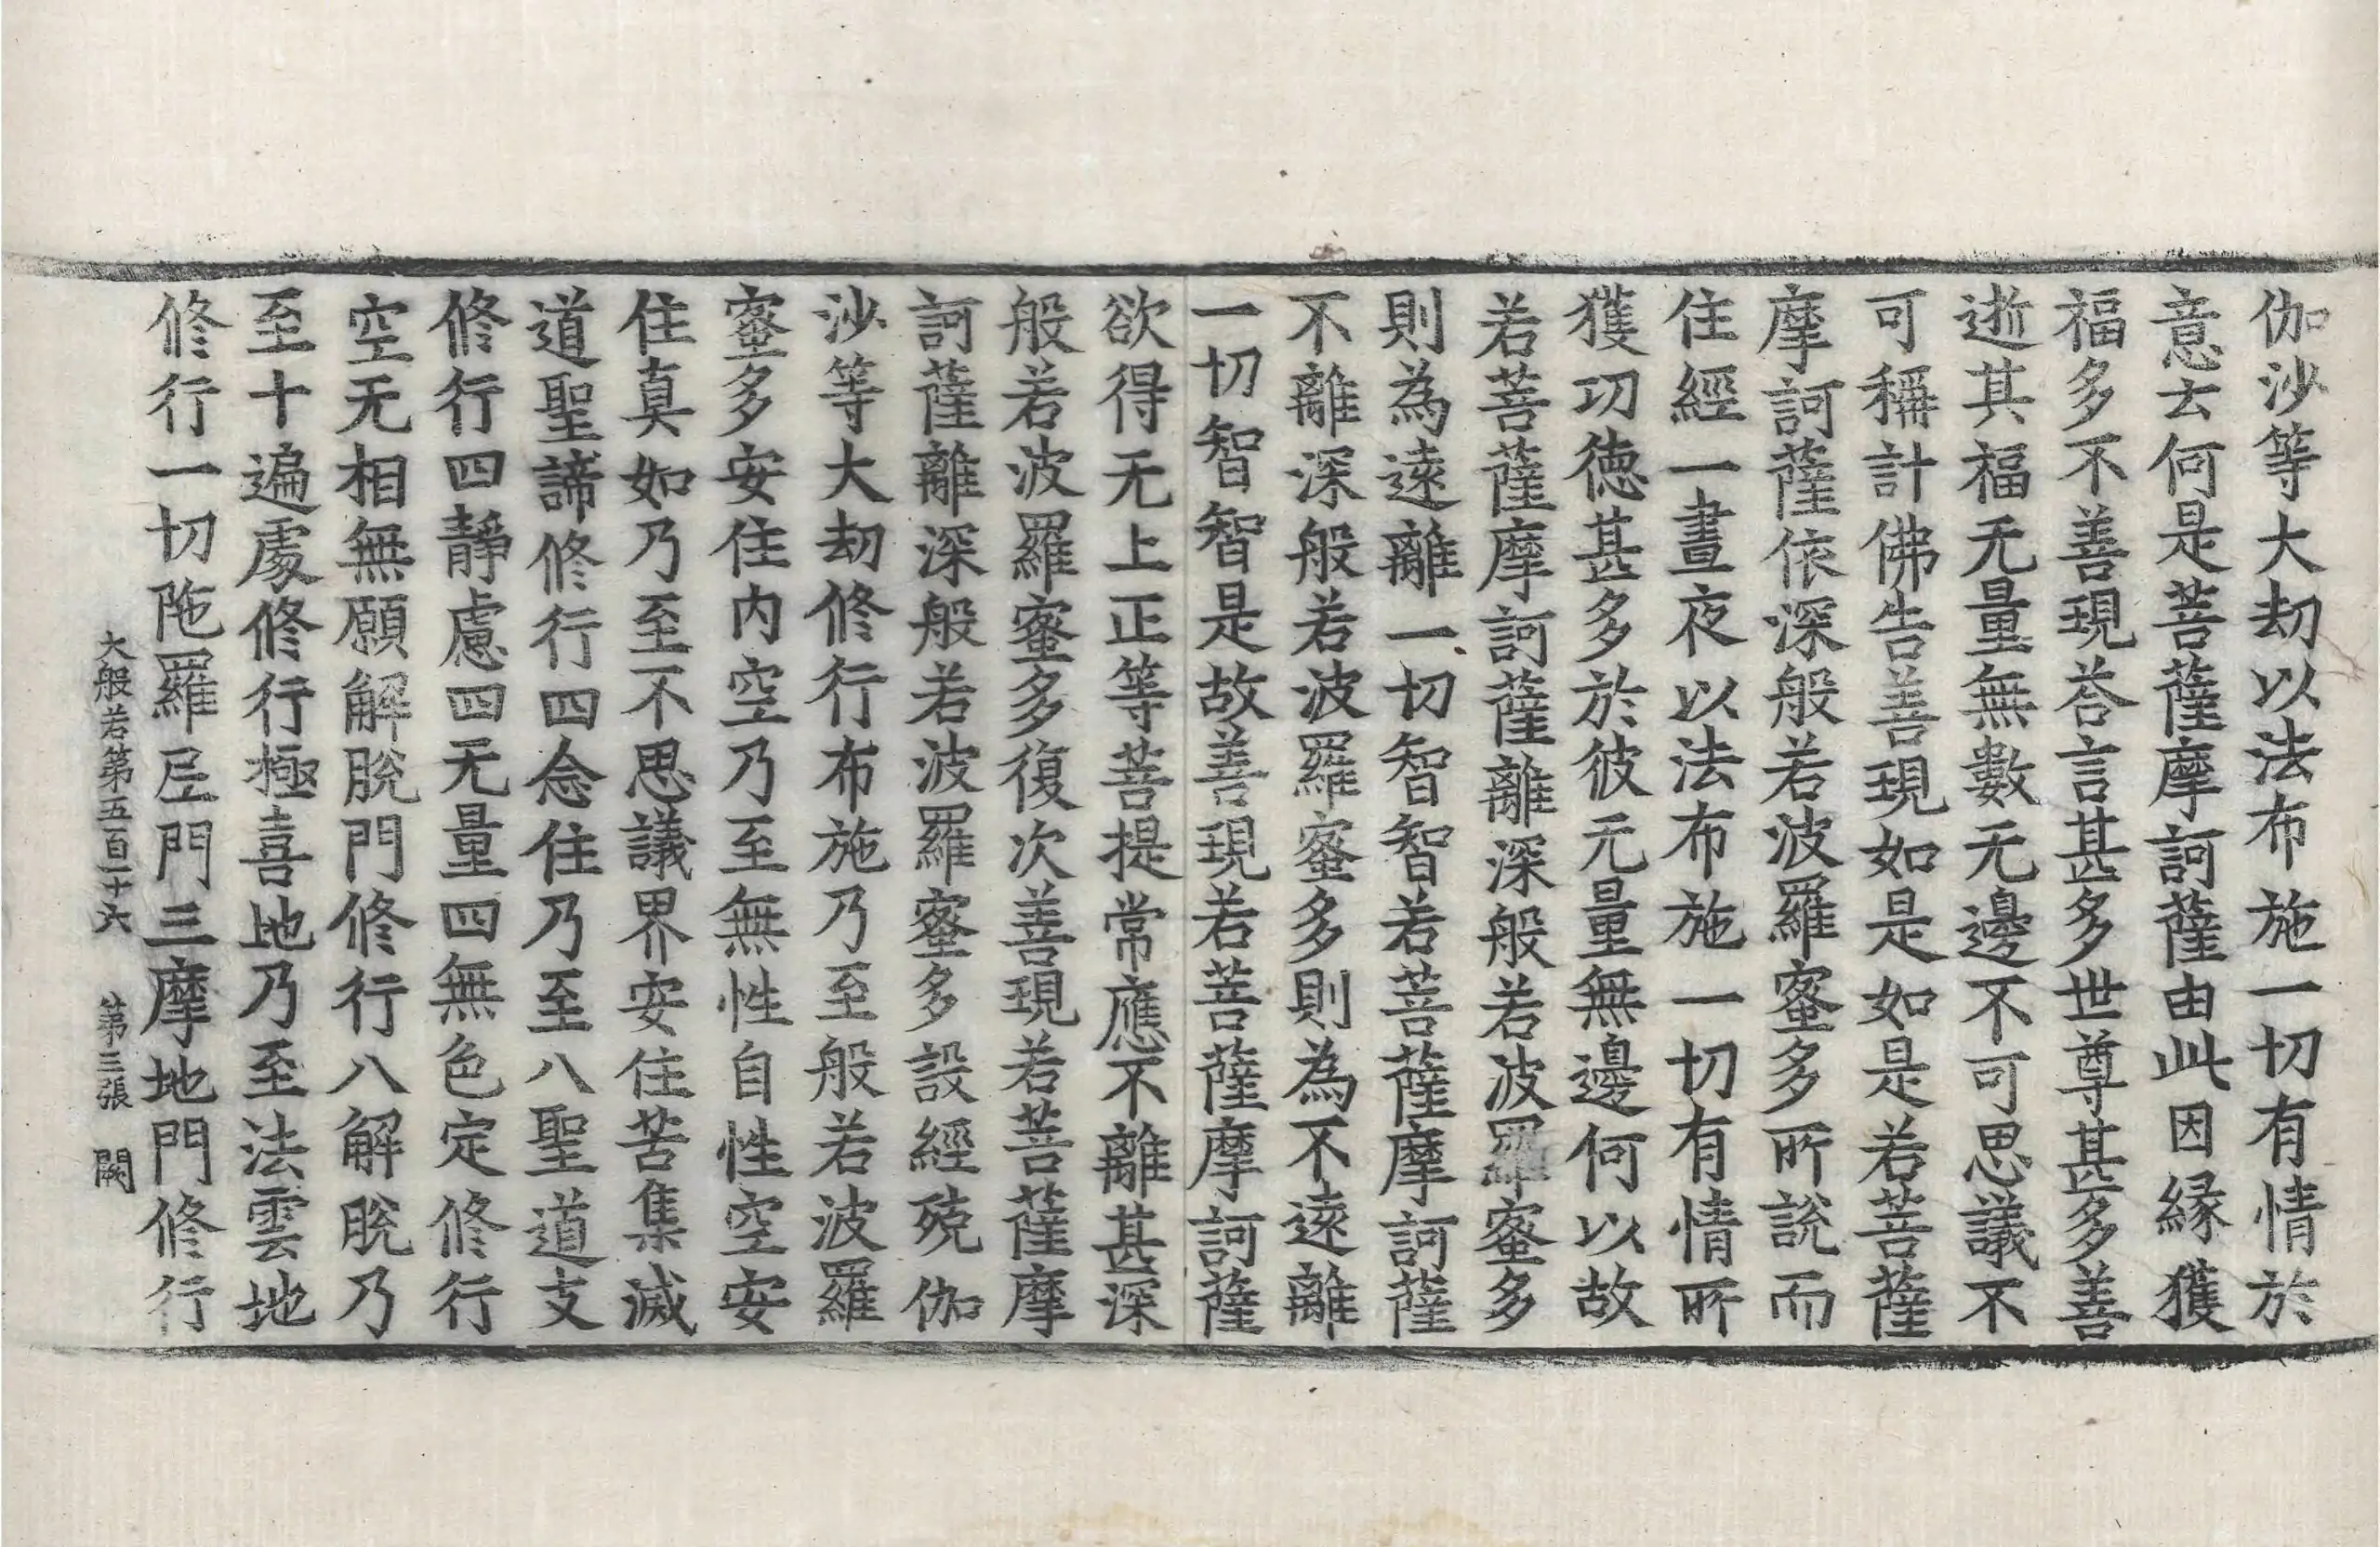 伽沙等大劫以法布施一切有情於
意云何是菩薩摩訶薩由此因緣獲
福多不善現荅言甚多世尊甚多善
逝其福无量無數无邊不可思議不
可稱計佛告善現如是如是若菩薩
摩訶薩依深般若波羅蜜多所說而
住經一晝夜以法布施一切有情所
獲功德甚多於彼无量無邊何以故
若菩薩摩訶薩離深般若波羅蜜多
則為遠離一切智智若菩薩摩訶薩
不離深般若波羅蜜多則為不遠離
一切智智是故善現若菩薩摩訶薩
欲得无上正等菩提常應不離甚深
般若波羅蜜多復次善現若菩薩摩
訶薩離深般若波羅蜜多設經殑伽
沙等大劫修行布施乃至般若波羅
蜜多安住內空乃至無性自性空安
住真如乃至不思議界安住苦集滅
道聖諦修行四念住乃至八聖道支
修行四靜慮四无量四無色定修行
空无相無願解脫門修行八解脫乃
至十遍處修行極喜地乃至法雲地
修行一切陁羅尼門三摩地門修行
大般若第五百二十六 第三張 闕